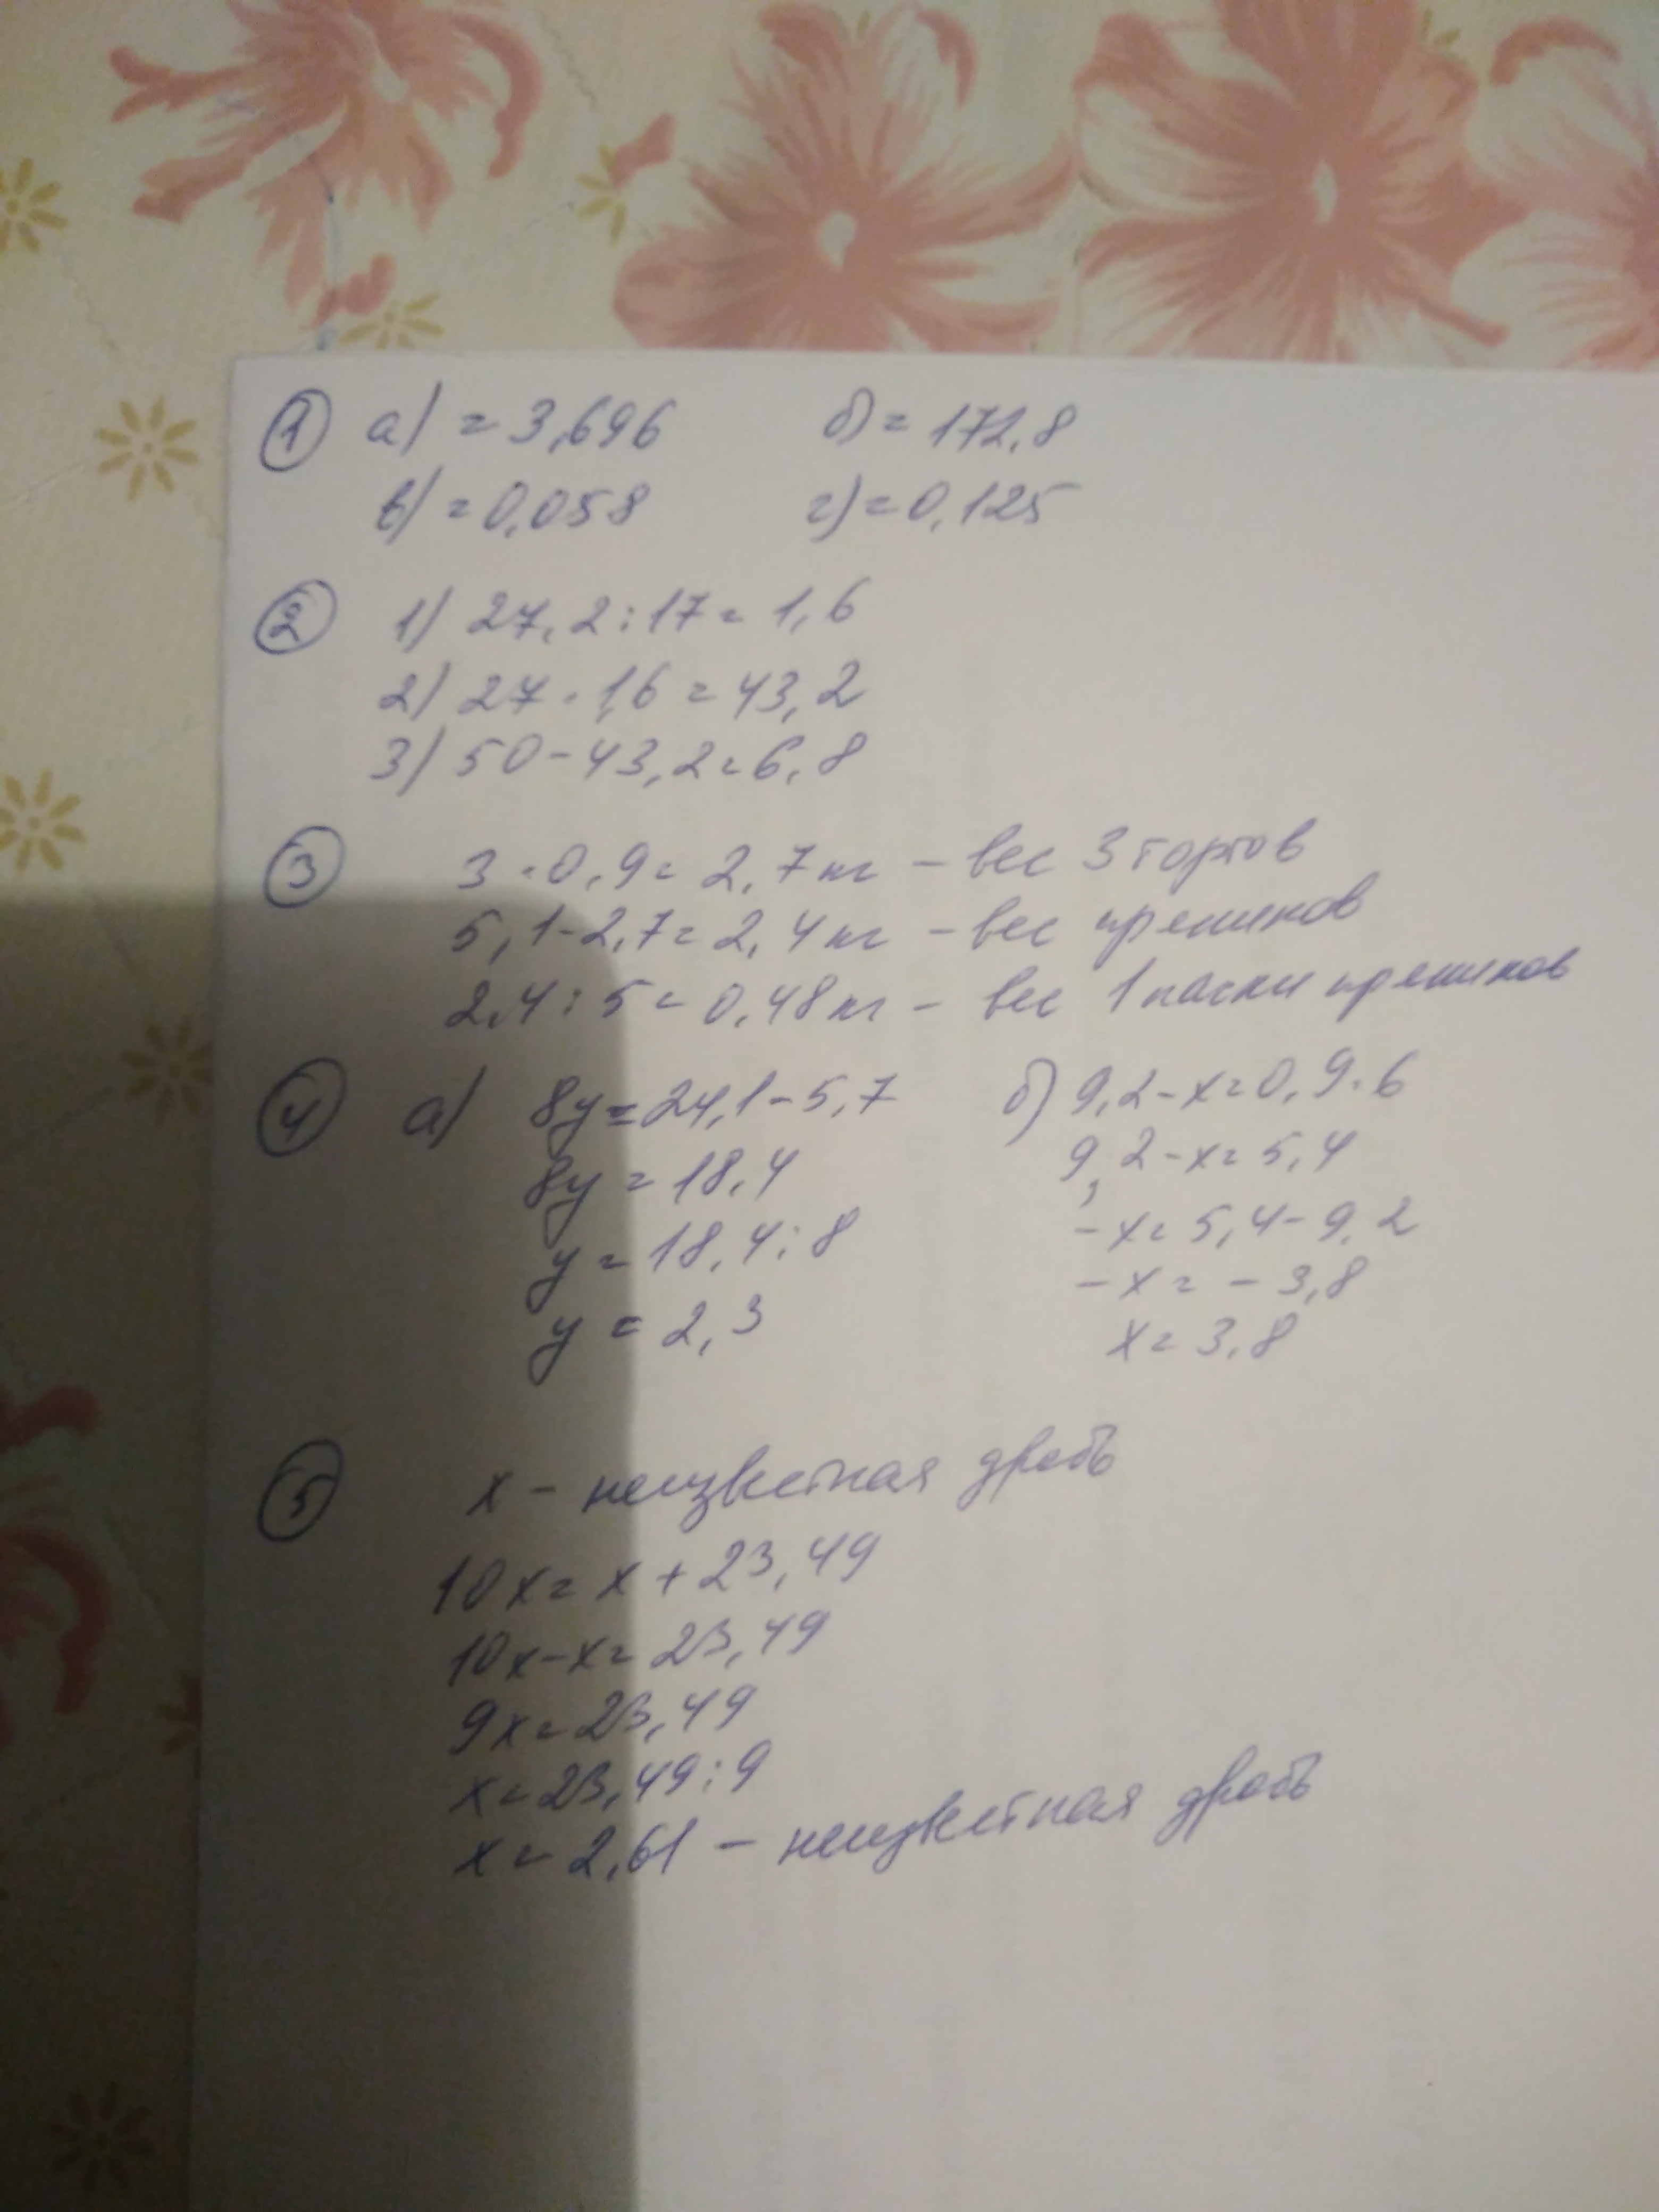 1 а) = 3,696 б) = 172,8
в) = 0,058 г) = 0,125
2 1) 27,2 : 17 = 1,6
2) 27 · 1,6 = 43,2
3) 50 - 43,2 = 6,8
3 3 · 0,9 = 2,7 кг - вес 3 тортов
5,1 - 2,7 = 2,4 кг - вес пряников
2,4 : 5 = 0,48 кг - вес 1 пачки пряников
4 а) 8y = 24,1 - 5,7 б) 9,2 - x = 0,9 · 6
8y = 18,4 9,2 - x = 5,4
y = 18,4 : 8 - x = 5,4 - 9,2
y = 2,3 - x = - 3,8
x = 3,8
5 x - неизвестная дробь
10x = x + 23,49
10x - x = 23,49
9x = 23,49
x = 23,49 : 9
x = 2,61 - неизвестная дробь